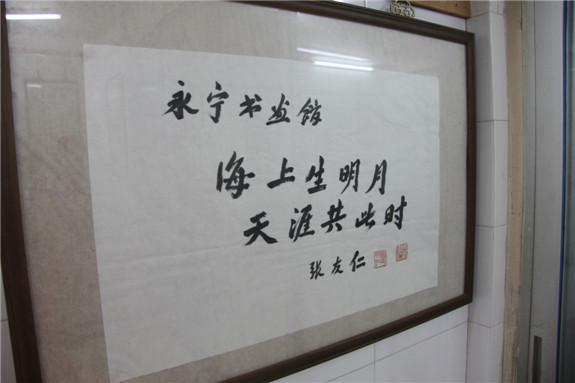 永宁书画馆
海上生明月
天涯共此时
张友仁